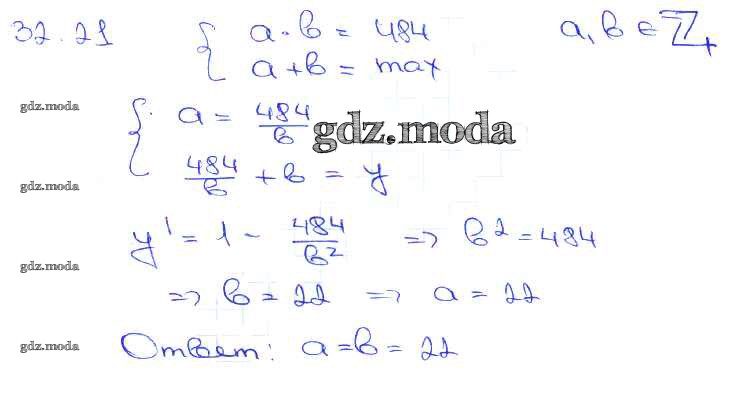 32.21 { a·b = 484 a, b ∈ ℤ₊
a+b = max
gdz.moda
{ a = 484/b
gdz.moda
484/b + b = y
gdz.moda
y' = 1 - 484/b² => b² = 484
gdz.moda
=> b = 22 => a = 22
gdz.moda
Ответ: a = b = 22